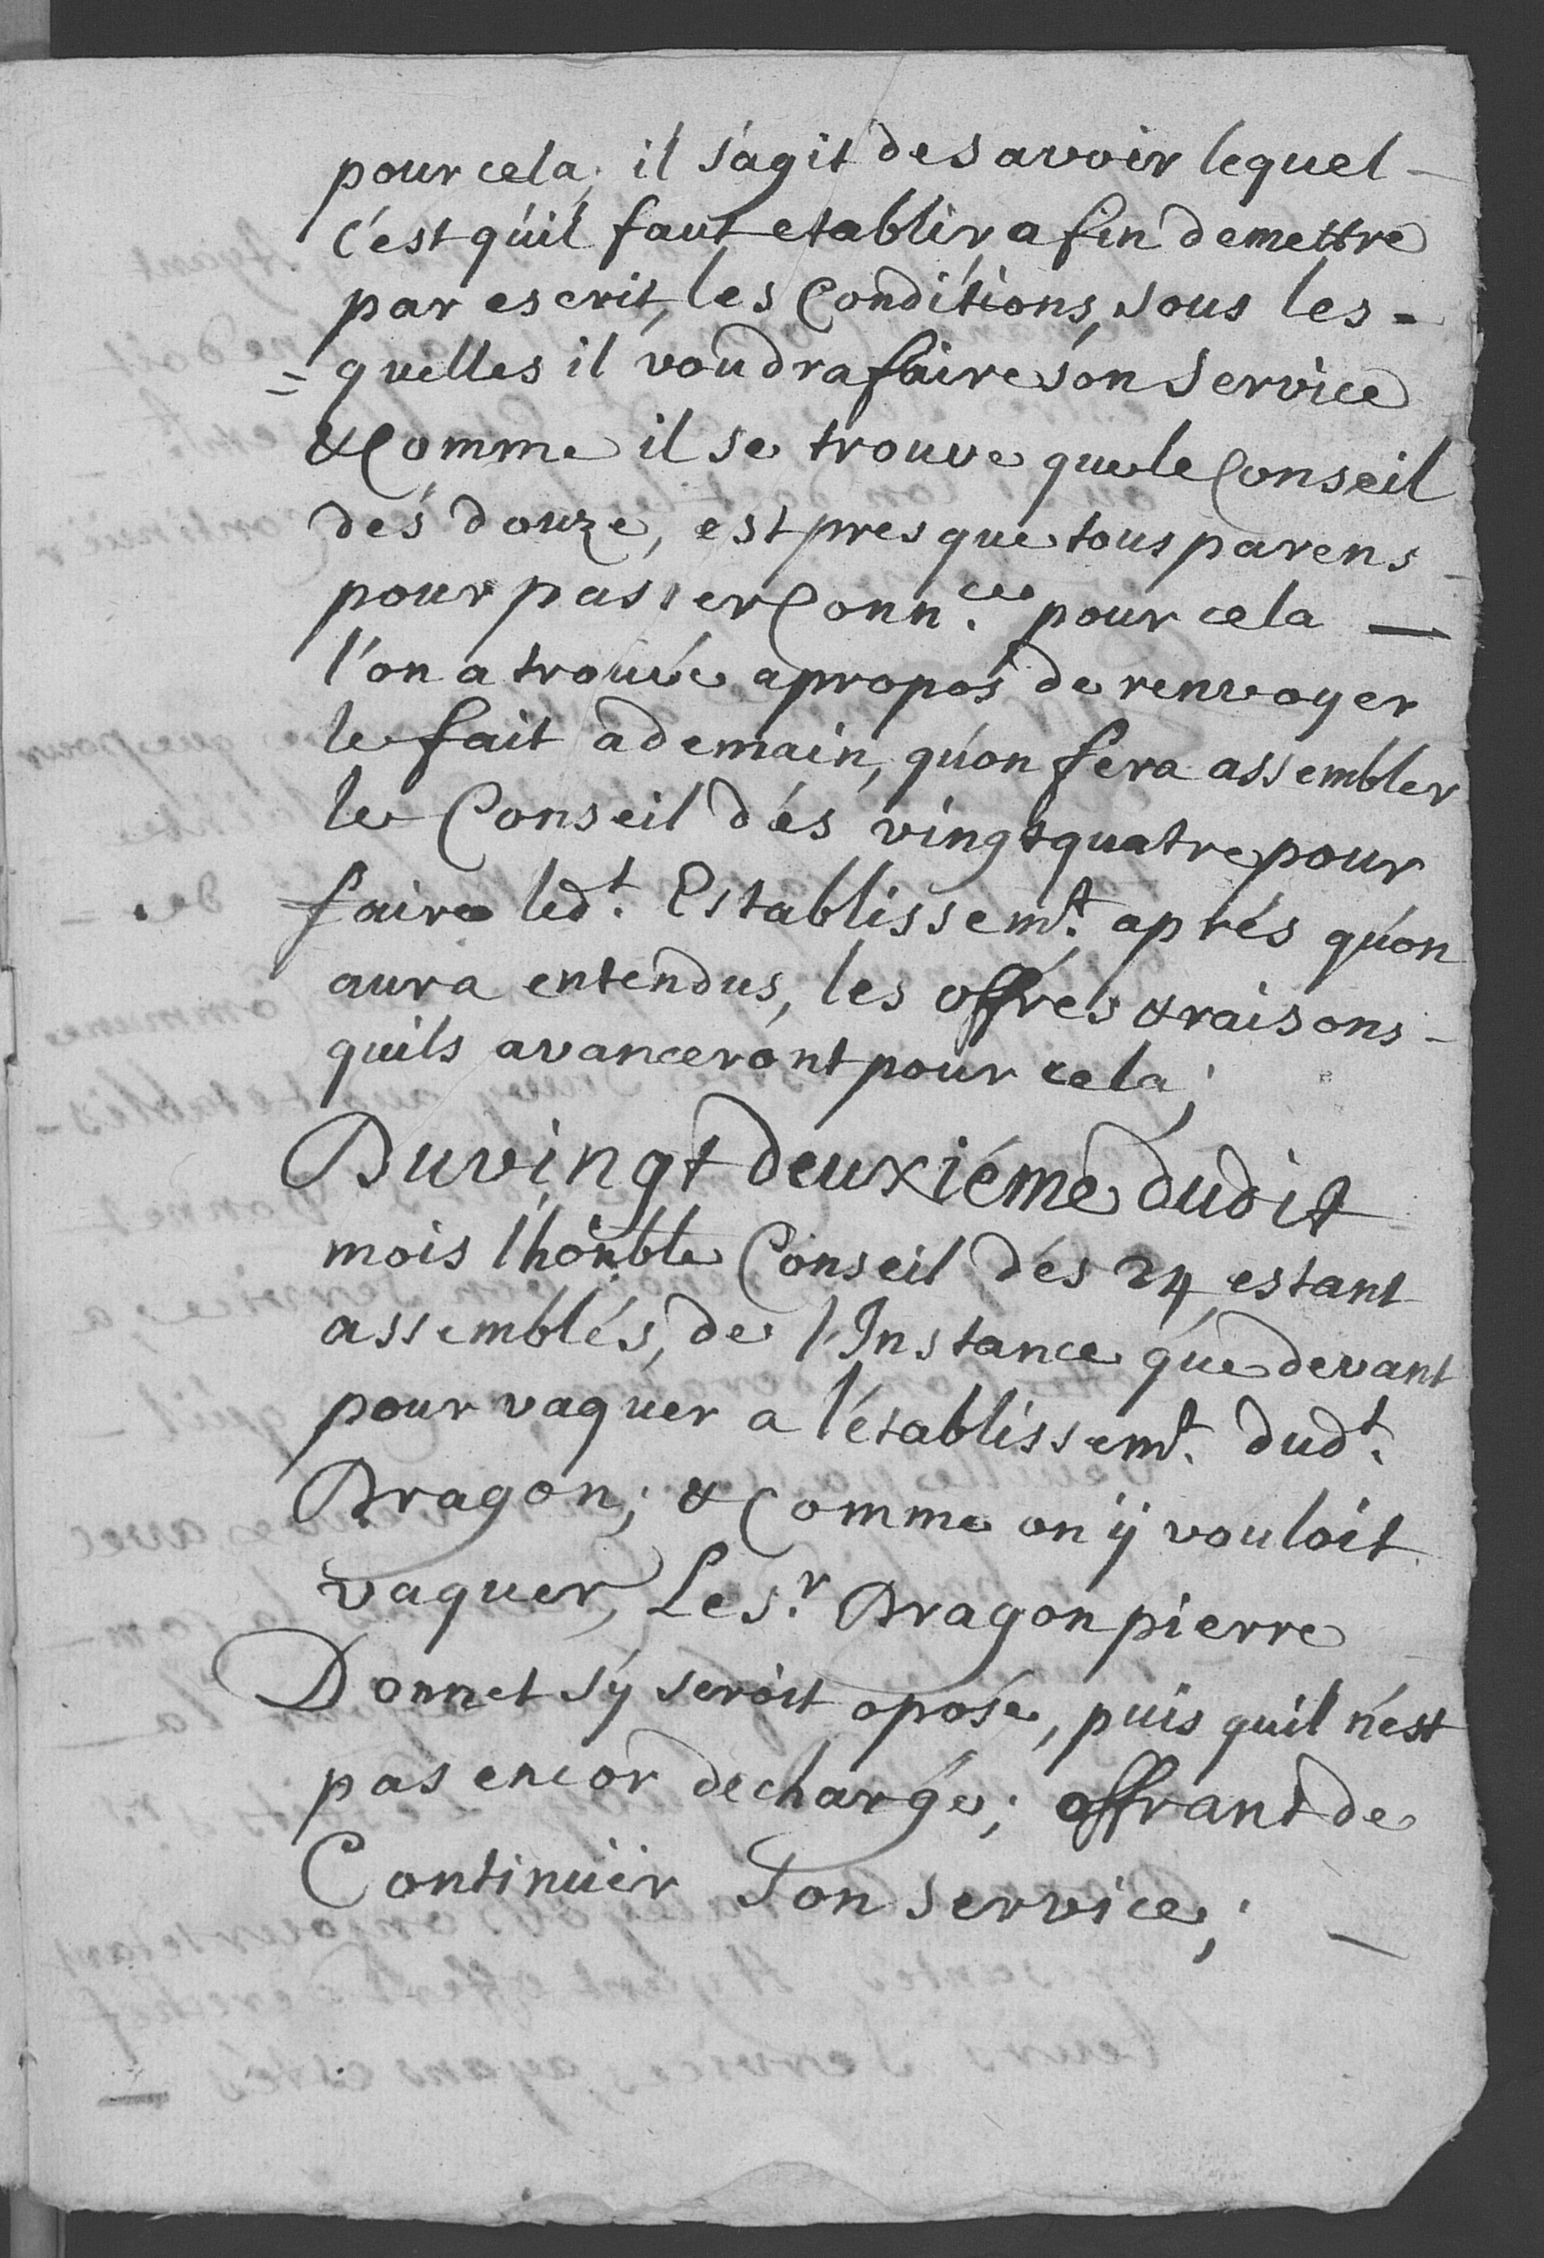 pour cela; il s'agit de savoir lequel -
c'est qu'il faut etablir, afin de mettre
par escrit, les Conditions, sous les =
= quelles il voudra faire son service
& Comme il se trouve que le Conseil
dés douze, est presque tous parens -
pour passer Conn.ce pour cela —
l'on a trouvé apropos de renvoyer
le fait a demain, qu'on fera assembler
le Conseil dés vingt quatre pour
faire led.t Establissem.t aprés qu'on
aura entendus, les offres & raisons -
quils avanceront pour cela;
Du vingt deuxiéme dudit
mois l'honble Conseil dés 24 estant
assemblés, de l'Instance que devant
pour vaquer a l'établissem.t dud.t
Dragon; & Comme on ÿ vouloit
vaquer, Le s.r Dragon pierre
Donnet s'y seroit oposé, puis quil n'est
pas encor dechargé; offrant de
Continuër Son service; —